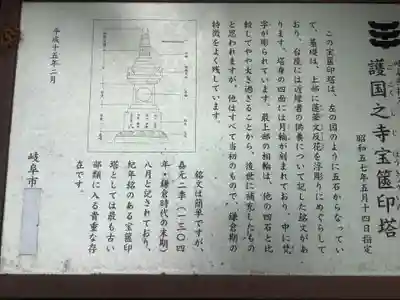 護国之寺宝篋印塔
昭和五七年五月十四日指定
この宝篋印塔は、左の図のように五石からなってい
て、基礎は、上部に蓮華文反花を浮彫りにめぐらして
おり、台座には近縁者の供養について記した銘文があ
ります。塔身の四面には月輪が刻まれており、中に梵
字が彫られています。最上部の相輪は、他の四石と比
較してやや大き過ぎることから、後世に補充したもの
と思われますが、他はすべて当初のもので、鎌倉期の
特徴をよく残しています。
銘文は簡単ですが、
嘉元二季(一三〇四
年・鎌倉時代の末期)
八月と記されており、
紀年銘のある宝篋印
塔としては最も古い
部類に入る貴重な存
在です。
平成十五年二月
岐阜市